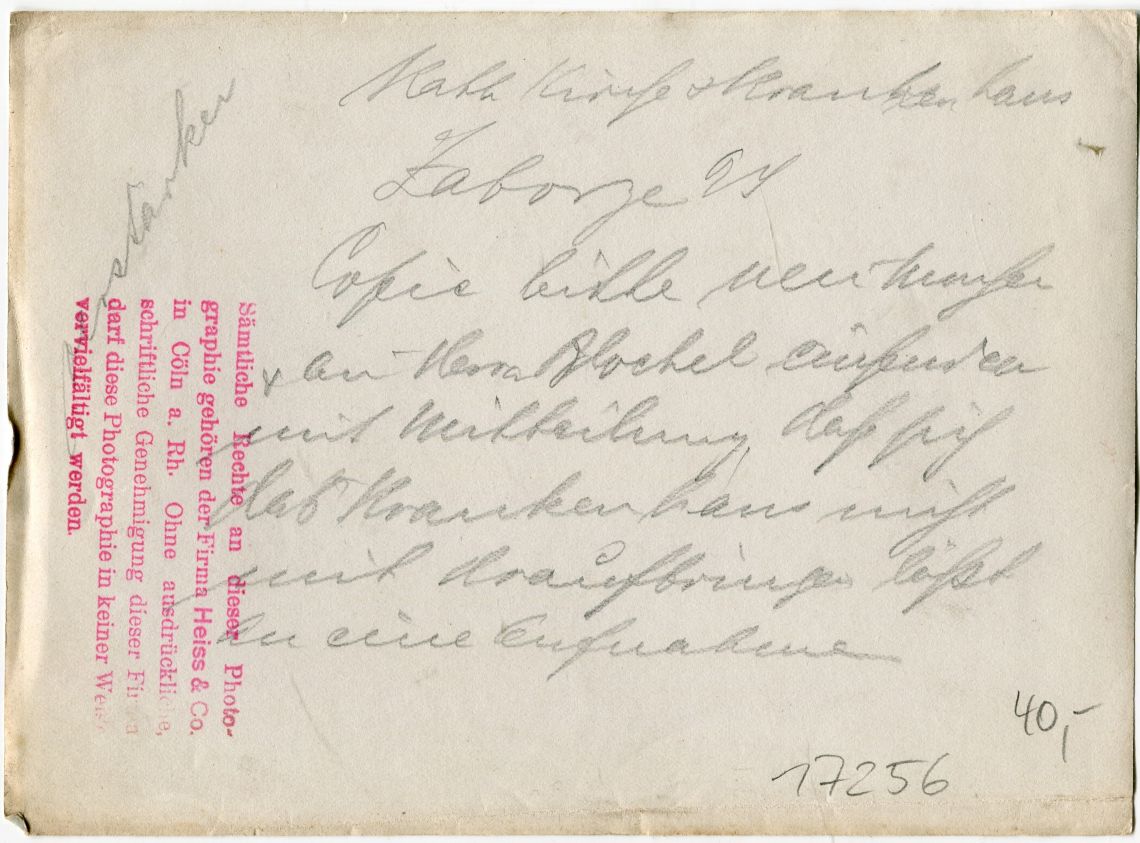 Kath Kirche & Krankenhaus
Zaborze
Copie bitte
an Herrn Blochel einsenden
mit Mitteilung daß sich
das Krankenhaus nicht
mit draufbringen läßt
in eine Aufnahme
40,-
17256
Sämtliche Rechte an dieser Photo-
graphie gehören der Firma Heiss & Co.
in Cöln a. Rh. Ohne ausdrückliche,
schriftliche Genehmigung dieser Firma
darf diese Photographie in keiner Weise
vervielfältigt werden.